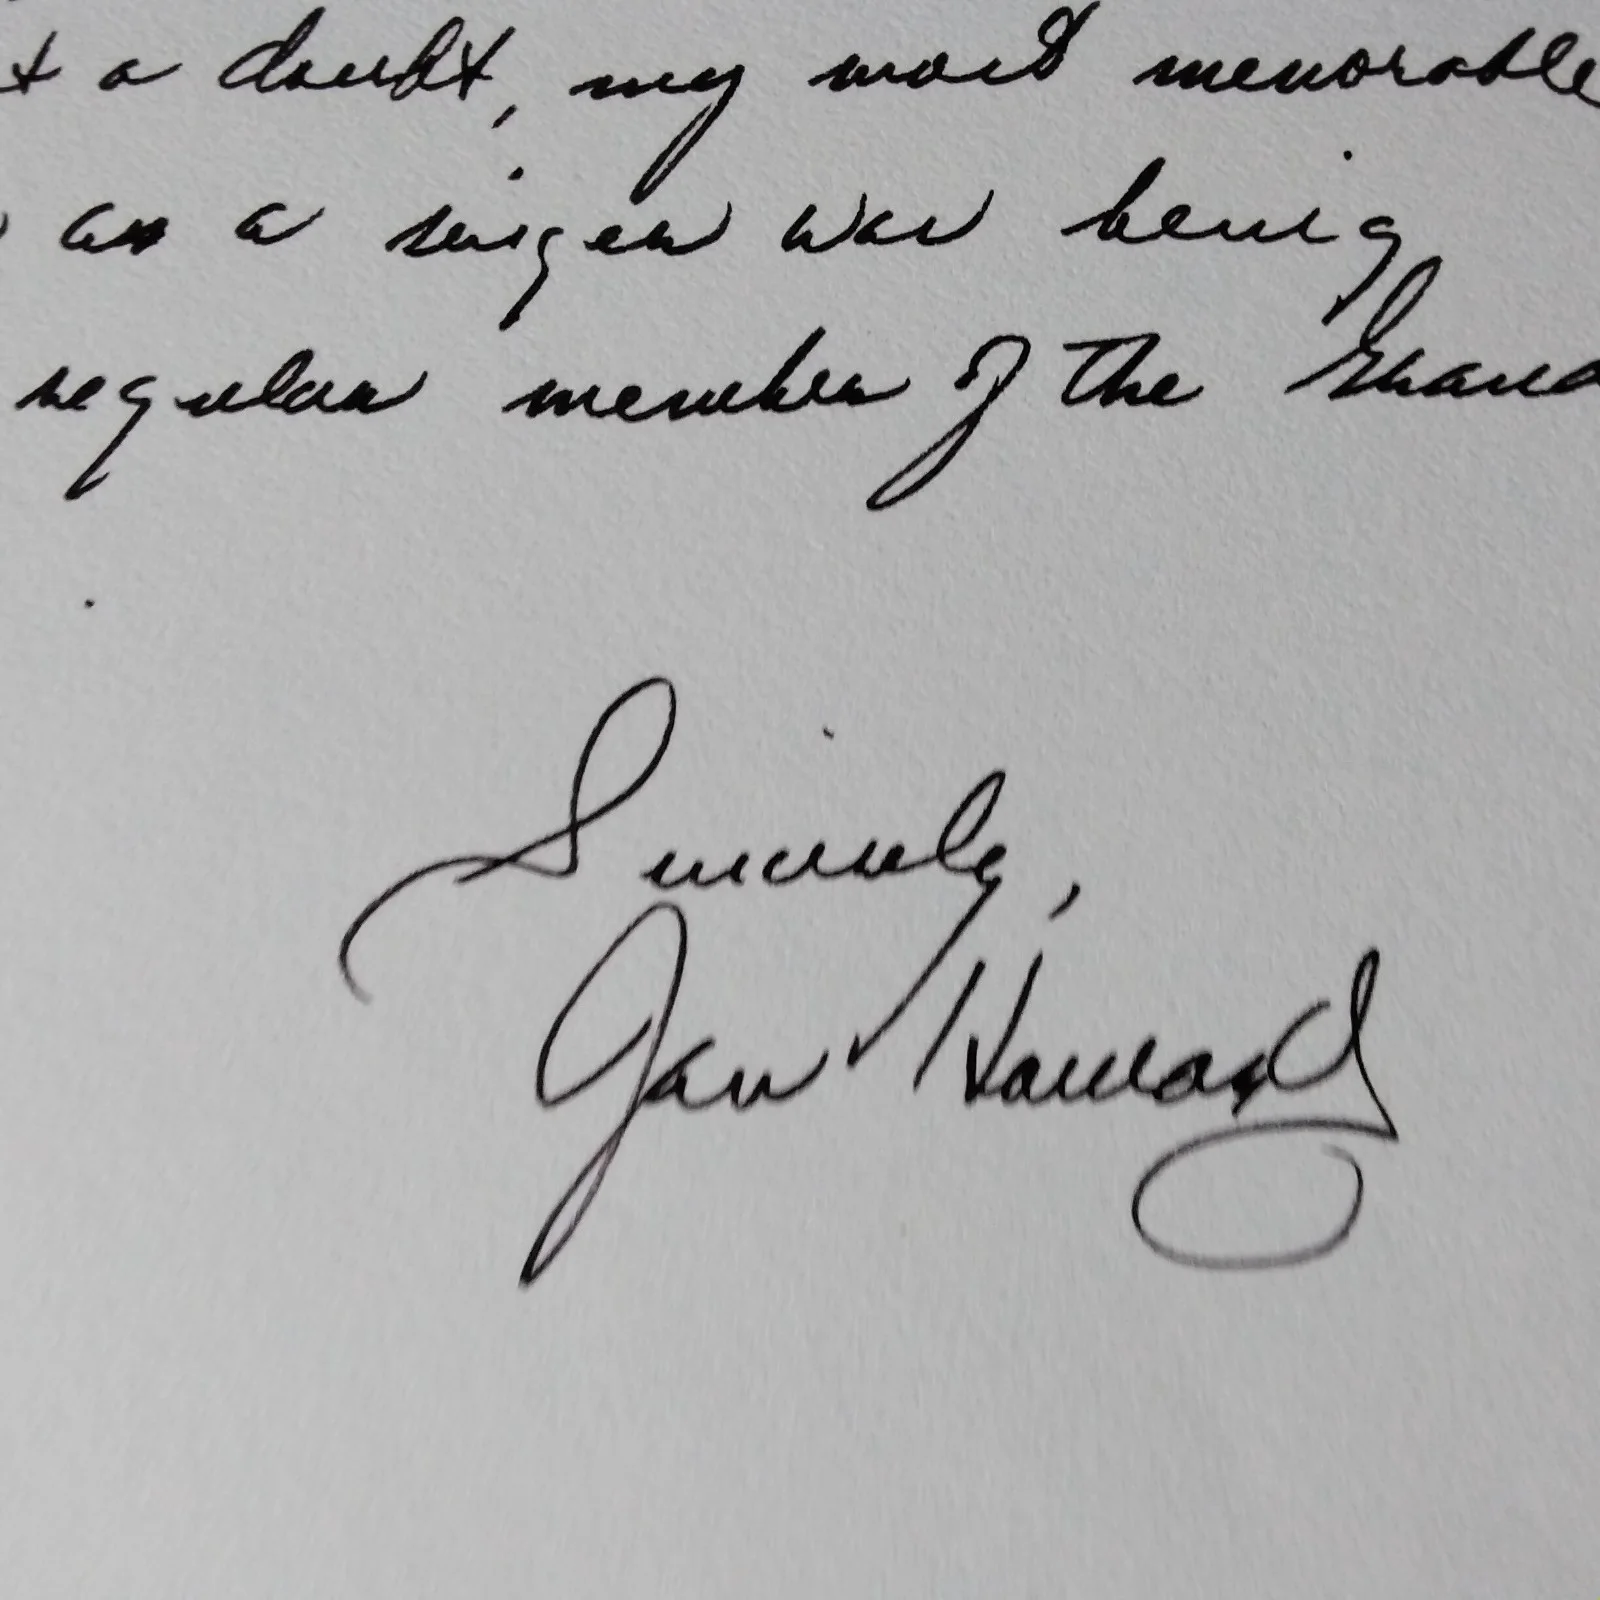 t a doubt, my most memorable
as a singer was being
regular member of the Grand
Sincerely,
Jan Howard